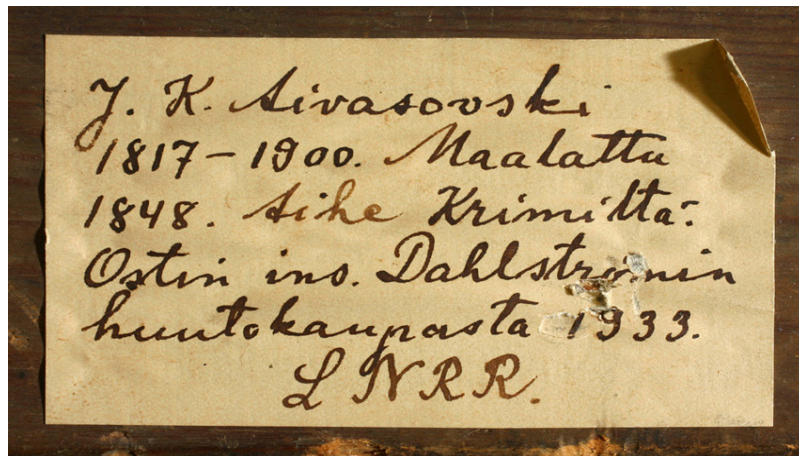 J. K. Aivasovski
1817 – 1900. Maalattu
1848. Aihe Krimiltä.
Ostin ins. Dahlströmin
huutokaupasta 1933.
L NRR.